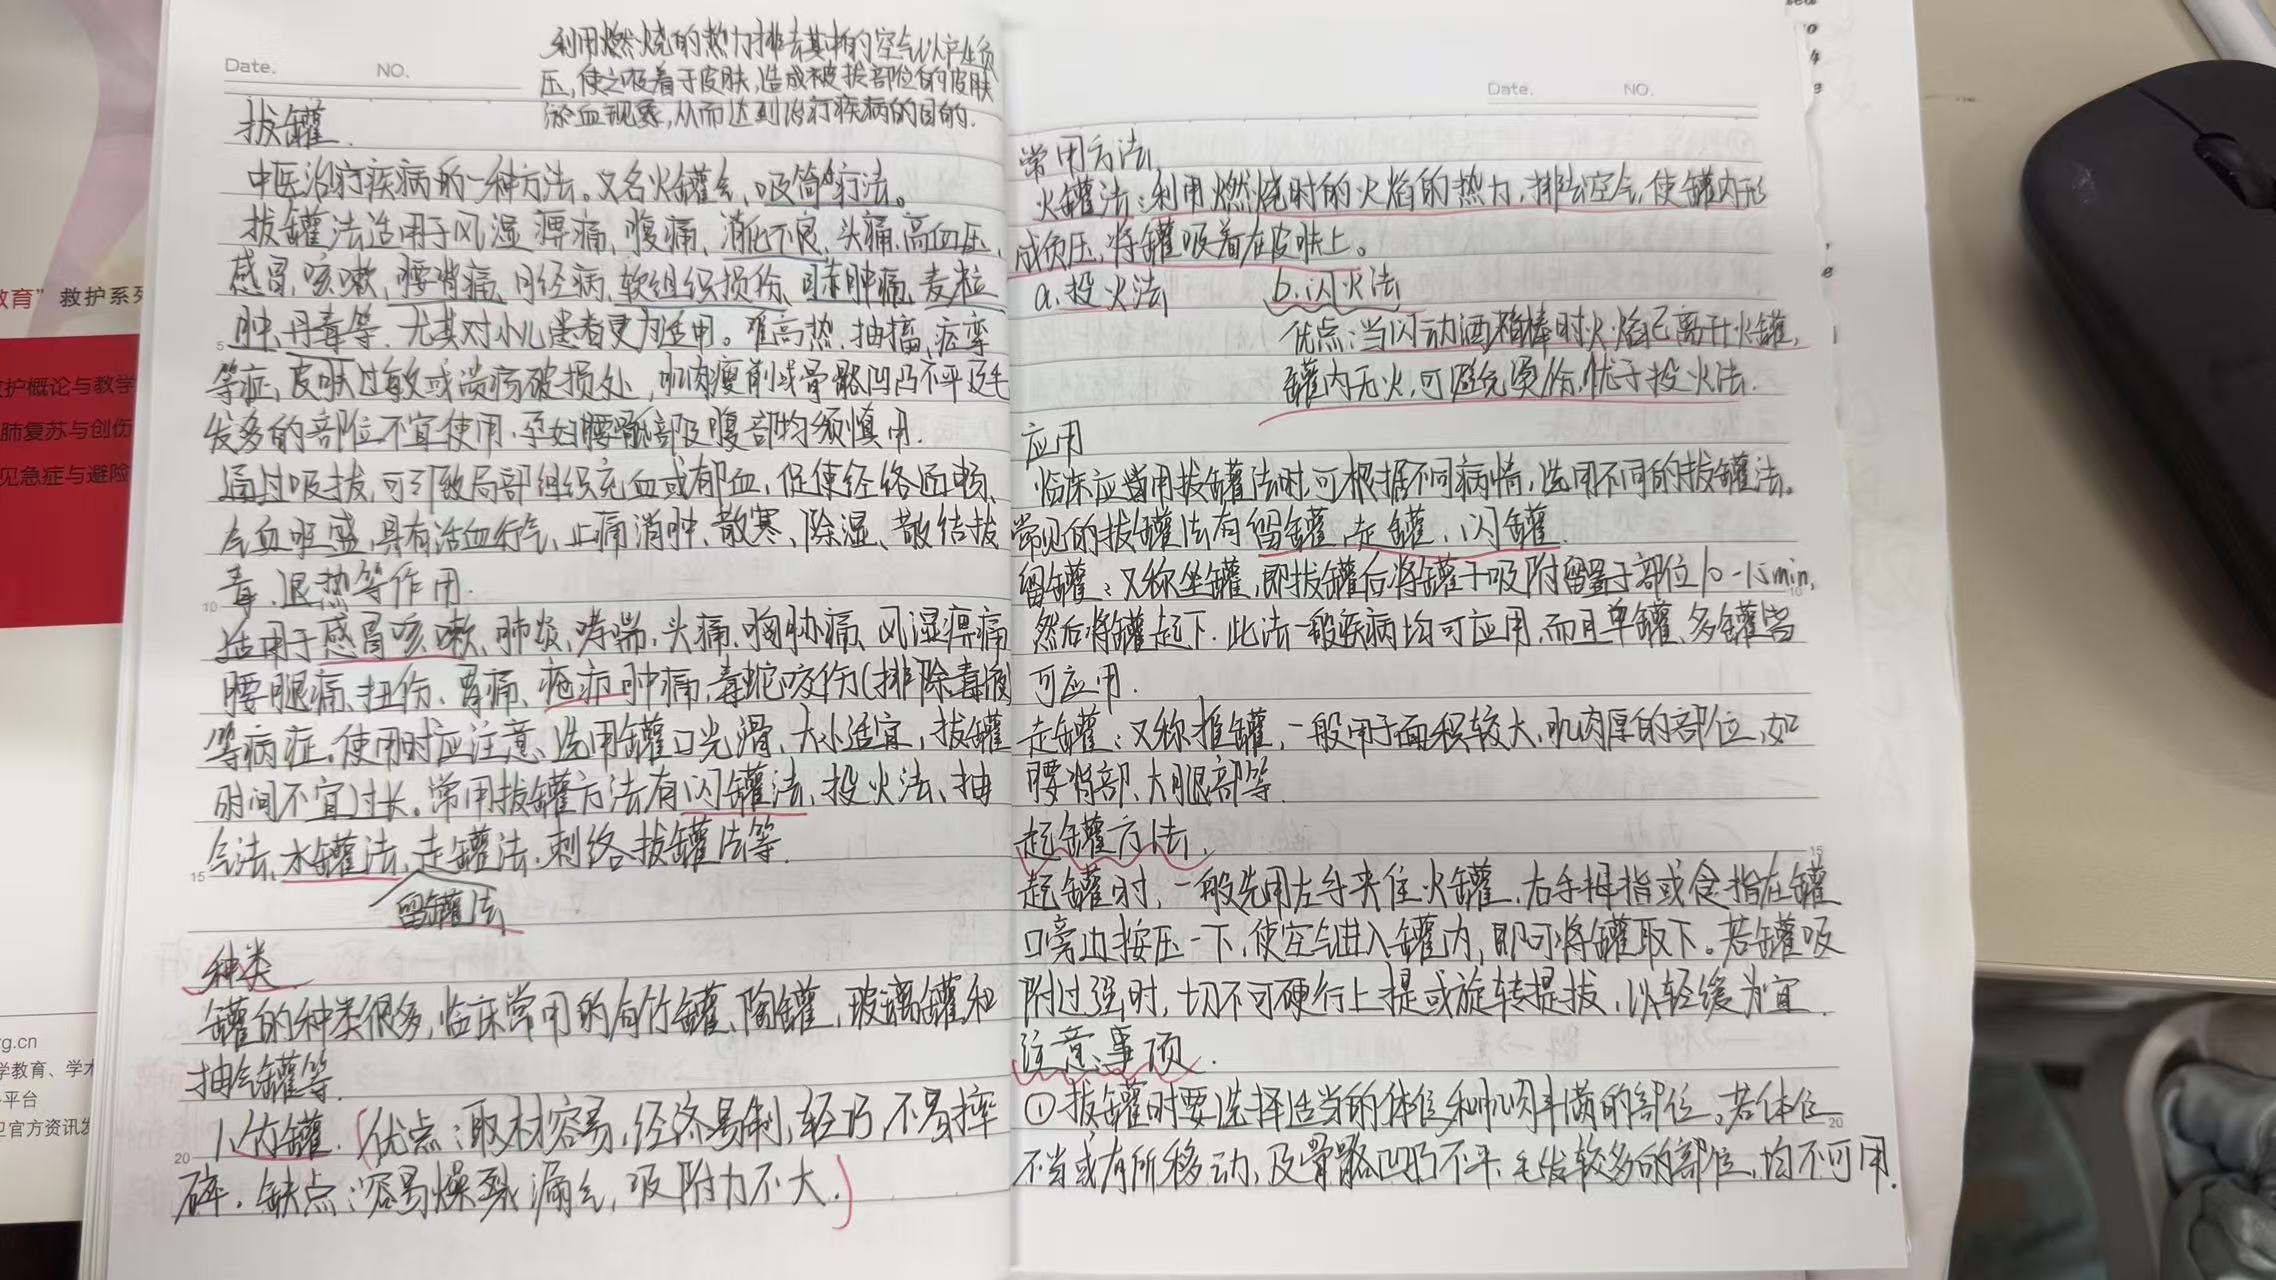 Date.
NO.
利用燃烧的热力排去其中的空气以产生负
压,使之吸着于皮肤,造成被拔部位的皮肤
淤血现象,从而达到治疗疾病的目的.
拔罐.
中医治疗疾病的一种方法。又名火罐气,吸筒疗法。
拔罐法适用于风湿痹痛、腹痛、消化不良、头痛、高血压、
感冒、咳嗽、腰背痛、月经病、软组织损伤、目赤肿痛、麦粒
肿、丹毒等.尤其对小儿患者更为适用。惟高热、抽搐、痉挛
等症,皮肤过敏或溃疡破损处,肌肉瘦削或骨骼凹凸不平及毛
发多的部位不宜使用.孕妇腰骶部及腹部均须慎用.
通过吸拔,可引致局部组织充血或郁血,促使经络通畅、
气血旺盛,具有活血行气、止痛消肿、散寒、除湿、散结拔
毒、退热等作用.
适用于感冒咳嗽、肺炎、哮喘、头痛、胸胁痛、风湿痹痛
腰腿痛、扭伤、胃痛、疮疖肿痛、毒蛇咬伤(排除毒液)
等病症。使用时应注意、选用罐口光滑、大小适宜,拔罐
时间不宜过长。常用拔罐方法有闪罐法、投火法、抽
气法、水罐法、走罐法、刺络拔罐法等.
留罐法
种类
罐的种类很多,临床常用的有竹罐、陶罐,玻璃罐和
抽气罐等.
1、竹罐.(优点:取材容易,经济易制,轻巧,不易摔
碎.缺点:容易燥裂漏气,吸附力不大.)
Date.
NO.
常用方法
火罐法:利用燃烧时的火焰的热力,排去空气,使罐内形
成负压,将罐吸着在皮肤上。
a.投火法
b.闪火法
优点:当闪动酒精棒时火焰已离开火罐,
罐内无火,可避免烫伤,优于投火法.
应用
临床应当用拔罐法时,可根据不同病情,选用不同的拔罐法。
常见的拔罐法有留罐、走罐、闪罐.
留罐:又称坐罐,即拔罐后将罐子吸附留置于部位10-15min,
然后将罐起下.此法一般疾病均可应用,而且单罐、多罐皆
可应用.
走罐:又称推罐,一般用于面积较大,肌肉厚的部位,如
腰背部、大腿部等.
起罐方法.
起罐时,一般先用左手夹住火罐,右手拇指或食指在罐
口旁边按压一下,使空气进入罐内,即可将罐取下。若罐吸
附过强时,切不可硬行上提或旋转提拔,以轻缓为宜.
注意事项.
①拔罐时要选择适当的体位和肌肉丰满的部位。若体位
不当或有所移动,及骨骼凹凸不平,毛发较多的部位,均不可用.
教育”救护系列
救护概论与教学
肺复苏与创伤
见急症与避险
rg.cn
学教育、学术
平台
卫官方资讯发
5
10
15
20
10
15
20